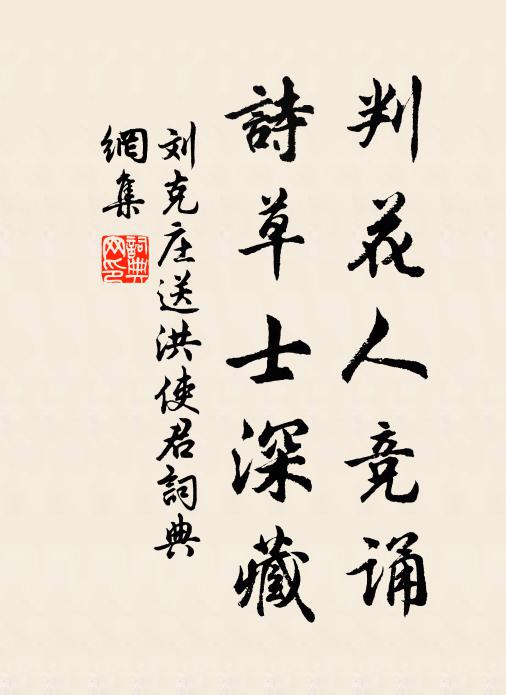 判花人竞诵
詩草士深藏
刘克庄送洪使君詞典
網集
詞典网印